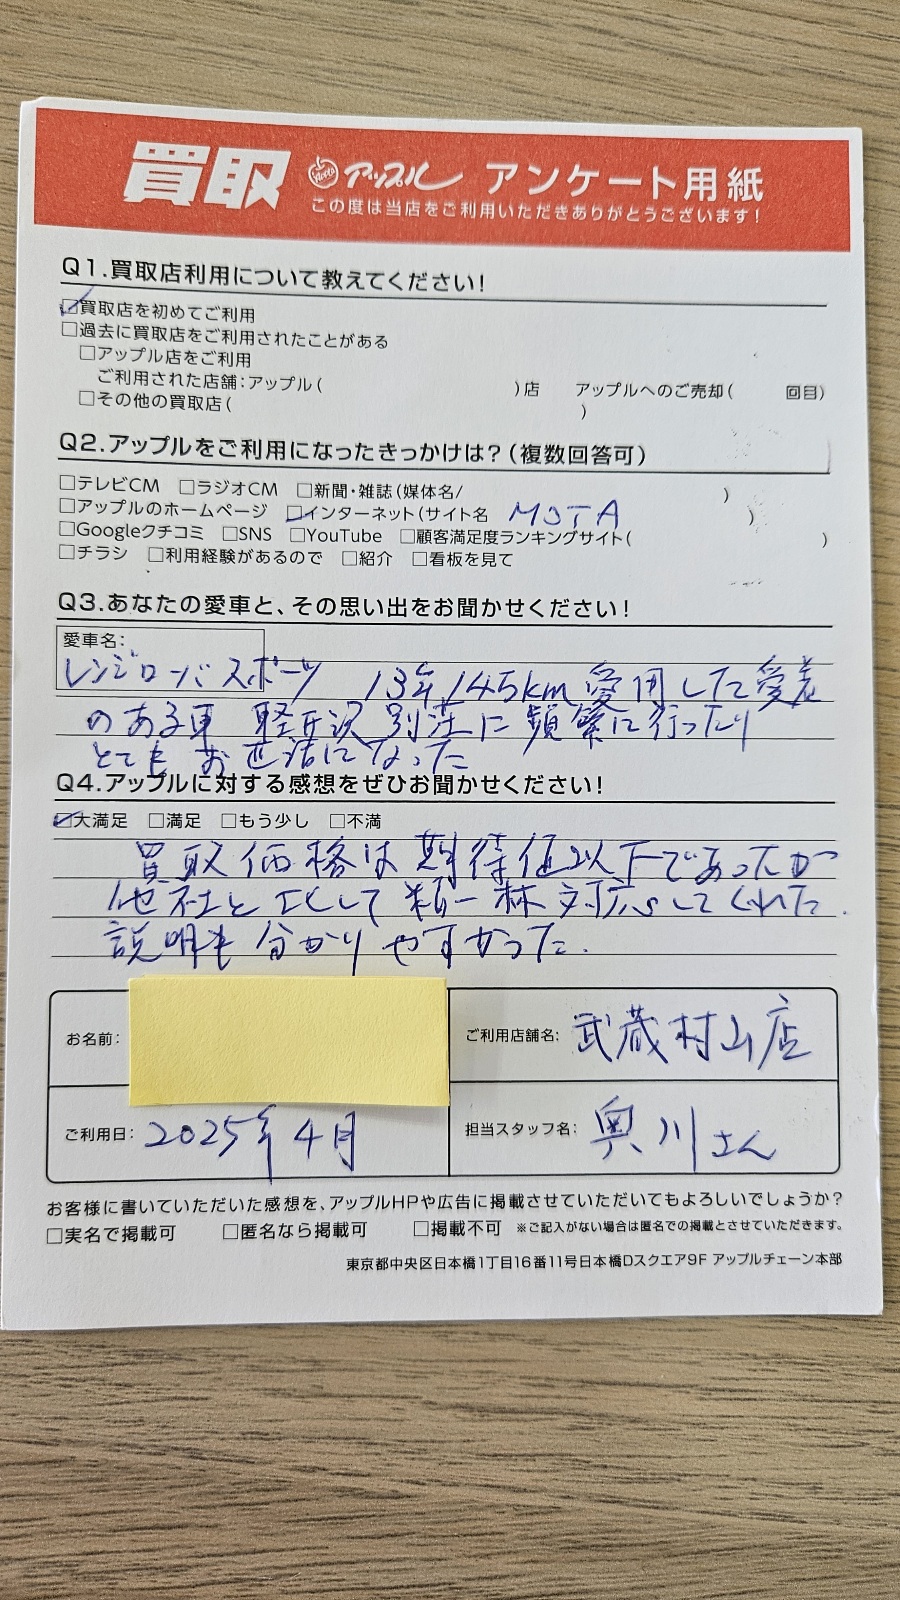 買取 Apple アップル アンケート用紙
この度は当店をご利用いただきありがとうございます!
Q1.買取店利用について教えてください!
☑買取店を初めてご利用
□過去に買取店をご利用されたことがある
□アップル店をご利用
ご利用された店舗:アップル( )店 アップルへのご売却( 回目)
□その他の買取店( )
Q2.アップルをご利用になったきっかけは?(複数回答可)
□テレビCM □ラジオCM □新聞・雑誌(媒体名/ )
□アップルのホームページ ☑インターネット(サイト名 MOTA )
□Googleクチコミ □SNS □YouTube □顧客満足度ランキングサイト( )
□チラシ □利用経験があるので □紹介 □看板を見て
Q3.あなたの愛車と、その思い出をお聞かせください!
愛車名:
レンジローバースポーツ 13年、145km愛用した愛着
のある車 軽井沢別荘に頻繁に行ったり
とても お世話になった
Q4.アップルに対する感想をぜひお聞かせください!
☑大満足 □満足 □もう少し □不満
買取価格は期待値以下であったが
他社と比して精一杯対応してくれた.
説明も分かりやすかった.
お名前:
ご利用店舗名: 武蔵村山店
ご利用日: 2025年4月
担当スタッフ名: 奥川さん
お客様に書いていただいた感想を、アップルHPや広告に掲載させていただいてもよろしいでしょうか?
□実名で掲載可 □匿名なら掲載可 □掲載不可 ※ご記入がない場合は匿名での掲載とさせていただきます。
東京都中央区日本橋1丁目16番11号日本橋Dスクエア9F アップルチェーン本部